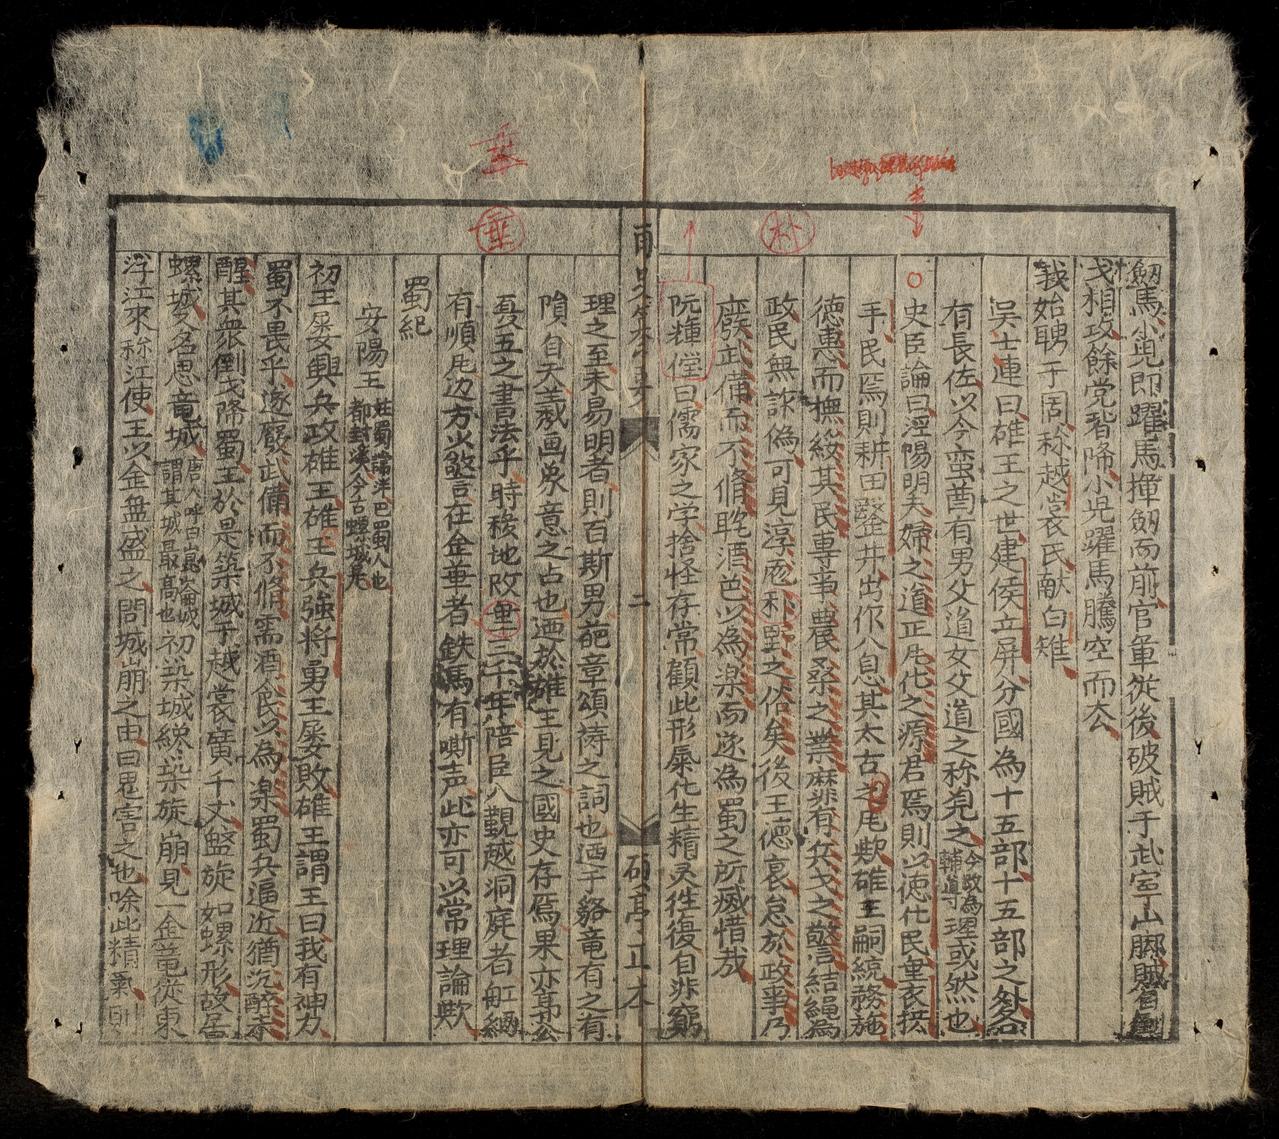 劔馬小児即躍馬揮劔而前官軍從後破賊于武寧山脚賊自倒
戈相攻餘党皆降小児躍馬騰空而去
我始聘于周称越裳氏献白雉
吳士連曰碓王之世建侯立屏分國為十五部十五部之外各
有長佐以今蛮酋有男父道女父道之称覌之今改為輔導理或然也
史臣論曰涇陽明夫婦之道正風化之源君焉則以徳化民垂衣拱
手民焉則耕田鑿井出作入息其太古之風欤碓王嗣統務施
徳惠而撫綏其民專事農桑之業靡有兵戈之警結繩為
政民無詐偽可見淳厖朴野之俗矣後王徳衰怠於政事乃
廃武備而不脩耽酒色以為楽而遂為蜀之所滅惜哉
阮種僮曰儒家之学捨怪存常顧此形氣化生精灵往復自非窮
南
二
碩亭正本
理之至未易明者則百斯男葩章頌祷之詞也迺于貉竜有之有
隕自天羲画象意之占也迺於雄王見之國史存焉果亦
夏五之書法乎時移地改垂三千年陪臣入覲越洞庭者
有順風边方火警言在金華者鉄馬有嘶声此亦可以常理論欤
蜀紀
安陽王 都封溪今古螺城是
初王屡興兵攻雄王碓王兵強将勇王屡敗碓王謂王曰我有神力
蜀不畏乎遂廢武備而不脩需酒食以為楽蜀兵逼近猶沉醉未
醒其衆倒戈降蜀王於是築城于越裳廣千丈盤旋如螺形故名
螺城又名思竜城唐人呼曰崑崙城謂其城最高也初築城終築旋崩見一金龟從東
浮江來称江使王以金盘盛之問城崩之由曰鬼害之也